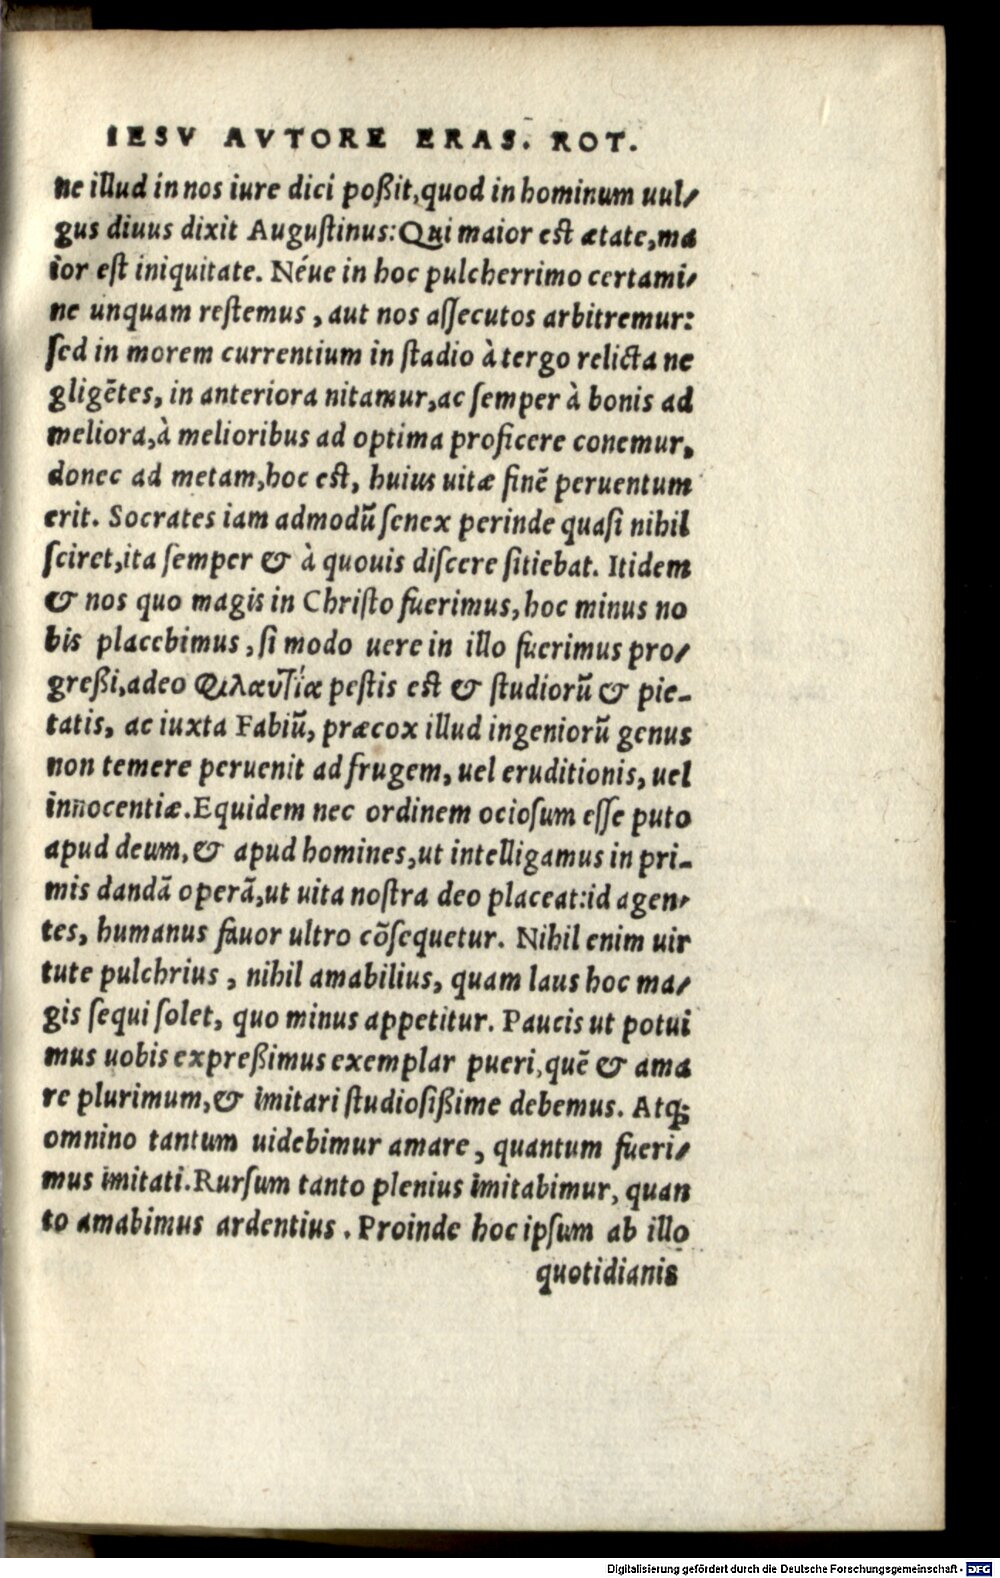 IESV AVTORE ERAS. ROT.
ne illud in nos iure dici poßit,quod in hominum uul/
gus diuus dixit Auguſtinus:Qui maior eſt ætate,ma
ior eſt iniquitate. Néue in hoc pulcherrimo certami/
ne unquam reſtemus , aut nos aſſecutos arbitremur:
ſed in morem currentium in ſtadio à tergo relicta ne
gligẽtes, in anteriora nitamur,ac ſemper à bonis ad
meliora,à melioribus ad optima proficere conemur,
donec ad metam,hoc eſt, huius uitæ finẽ peruentum
erit. Socrates iam admodũ ſenex perinde quaſi nihil
ſciret,ita ſemper & à quouis diſcere ſitiebat. Itidem
& nos quo magis in Chriſto fuerimus, hoc minus no
bis placebimus , ſi modo uere in illo fuerimus pro/
greßi,adeo Φιλαυτία peſtis eſt & ſtudiorũ & pie-
tatis, ac iuxta Fabiũ, præcox illud ingeniorũ genus
non temere peruenit ad frugem, uel eruditionis, uel
innocentiæ.Equidem nec ordinem ocioſum eſſe puto
apud deum, & apud homines,ut intelligamus in pri-
mis dandã operã,ut uita noſtra deo placeat:id agen/
tes, humanus fauor ultro cõſequetur. Nihil enim uir
tute pulchrius , nihil amabilius, quam laus hoc ma/
gis ſequi ſolet, quo minus appetitur. Paucis ut potui
mus uobis expreßimus exemplar pueri,quẽ & ama
re plurimum,& imitari ſtudioſißime debemus. Atq;
omnino tantum uidebimur amare , quantum fueri/
mus imitati.Rurſum tanto plenius imitabimur, quan
to amabimus ardentius . Proinde hoc ipſum ab illo
quotidianis
Digitalisierung gefördert durch die Deutsche Forschungsgemeinschaft - DFG